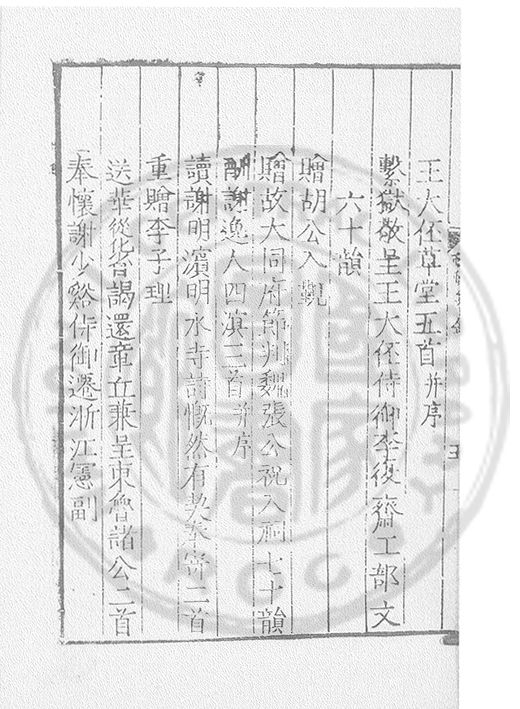 王大伾草堂五首并序
繫獄敬呈王大伾侍御李復齋工部文
六十韻
贈胡公入覲
贈故大同府節判魏張公祝入祠七十韻
酬謝逸人四溟三首并序
讀謝明濵明水寺詩慨然有契奉寄二首
重贈李子理
送華從化省謁還章丘兼呈東魯諸公二首
奉懷謝少谿侍御遷浙江憲副